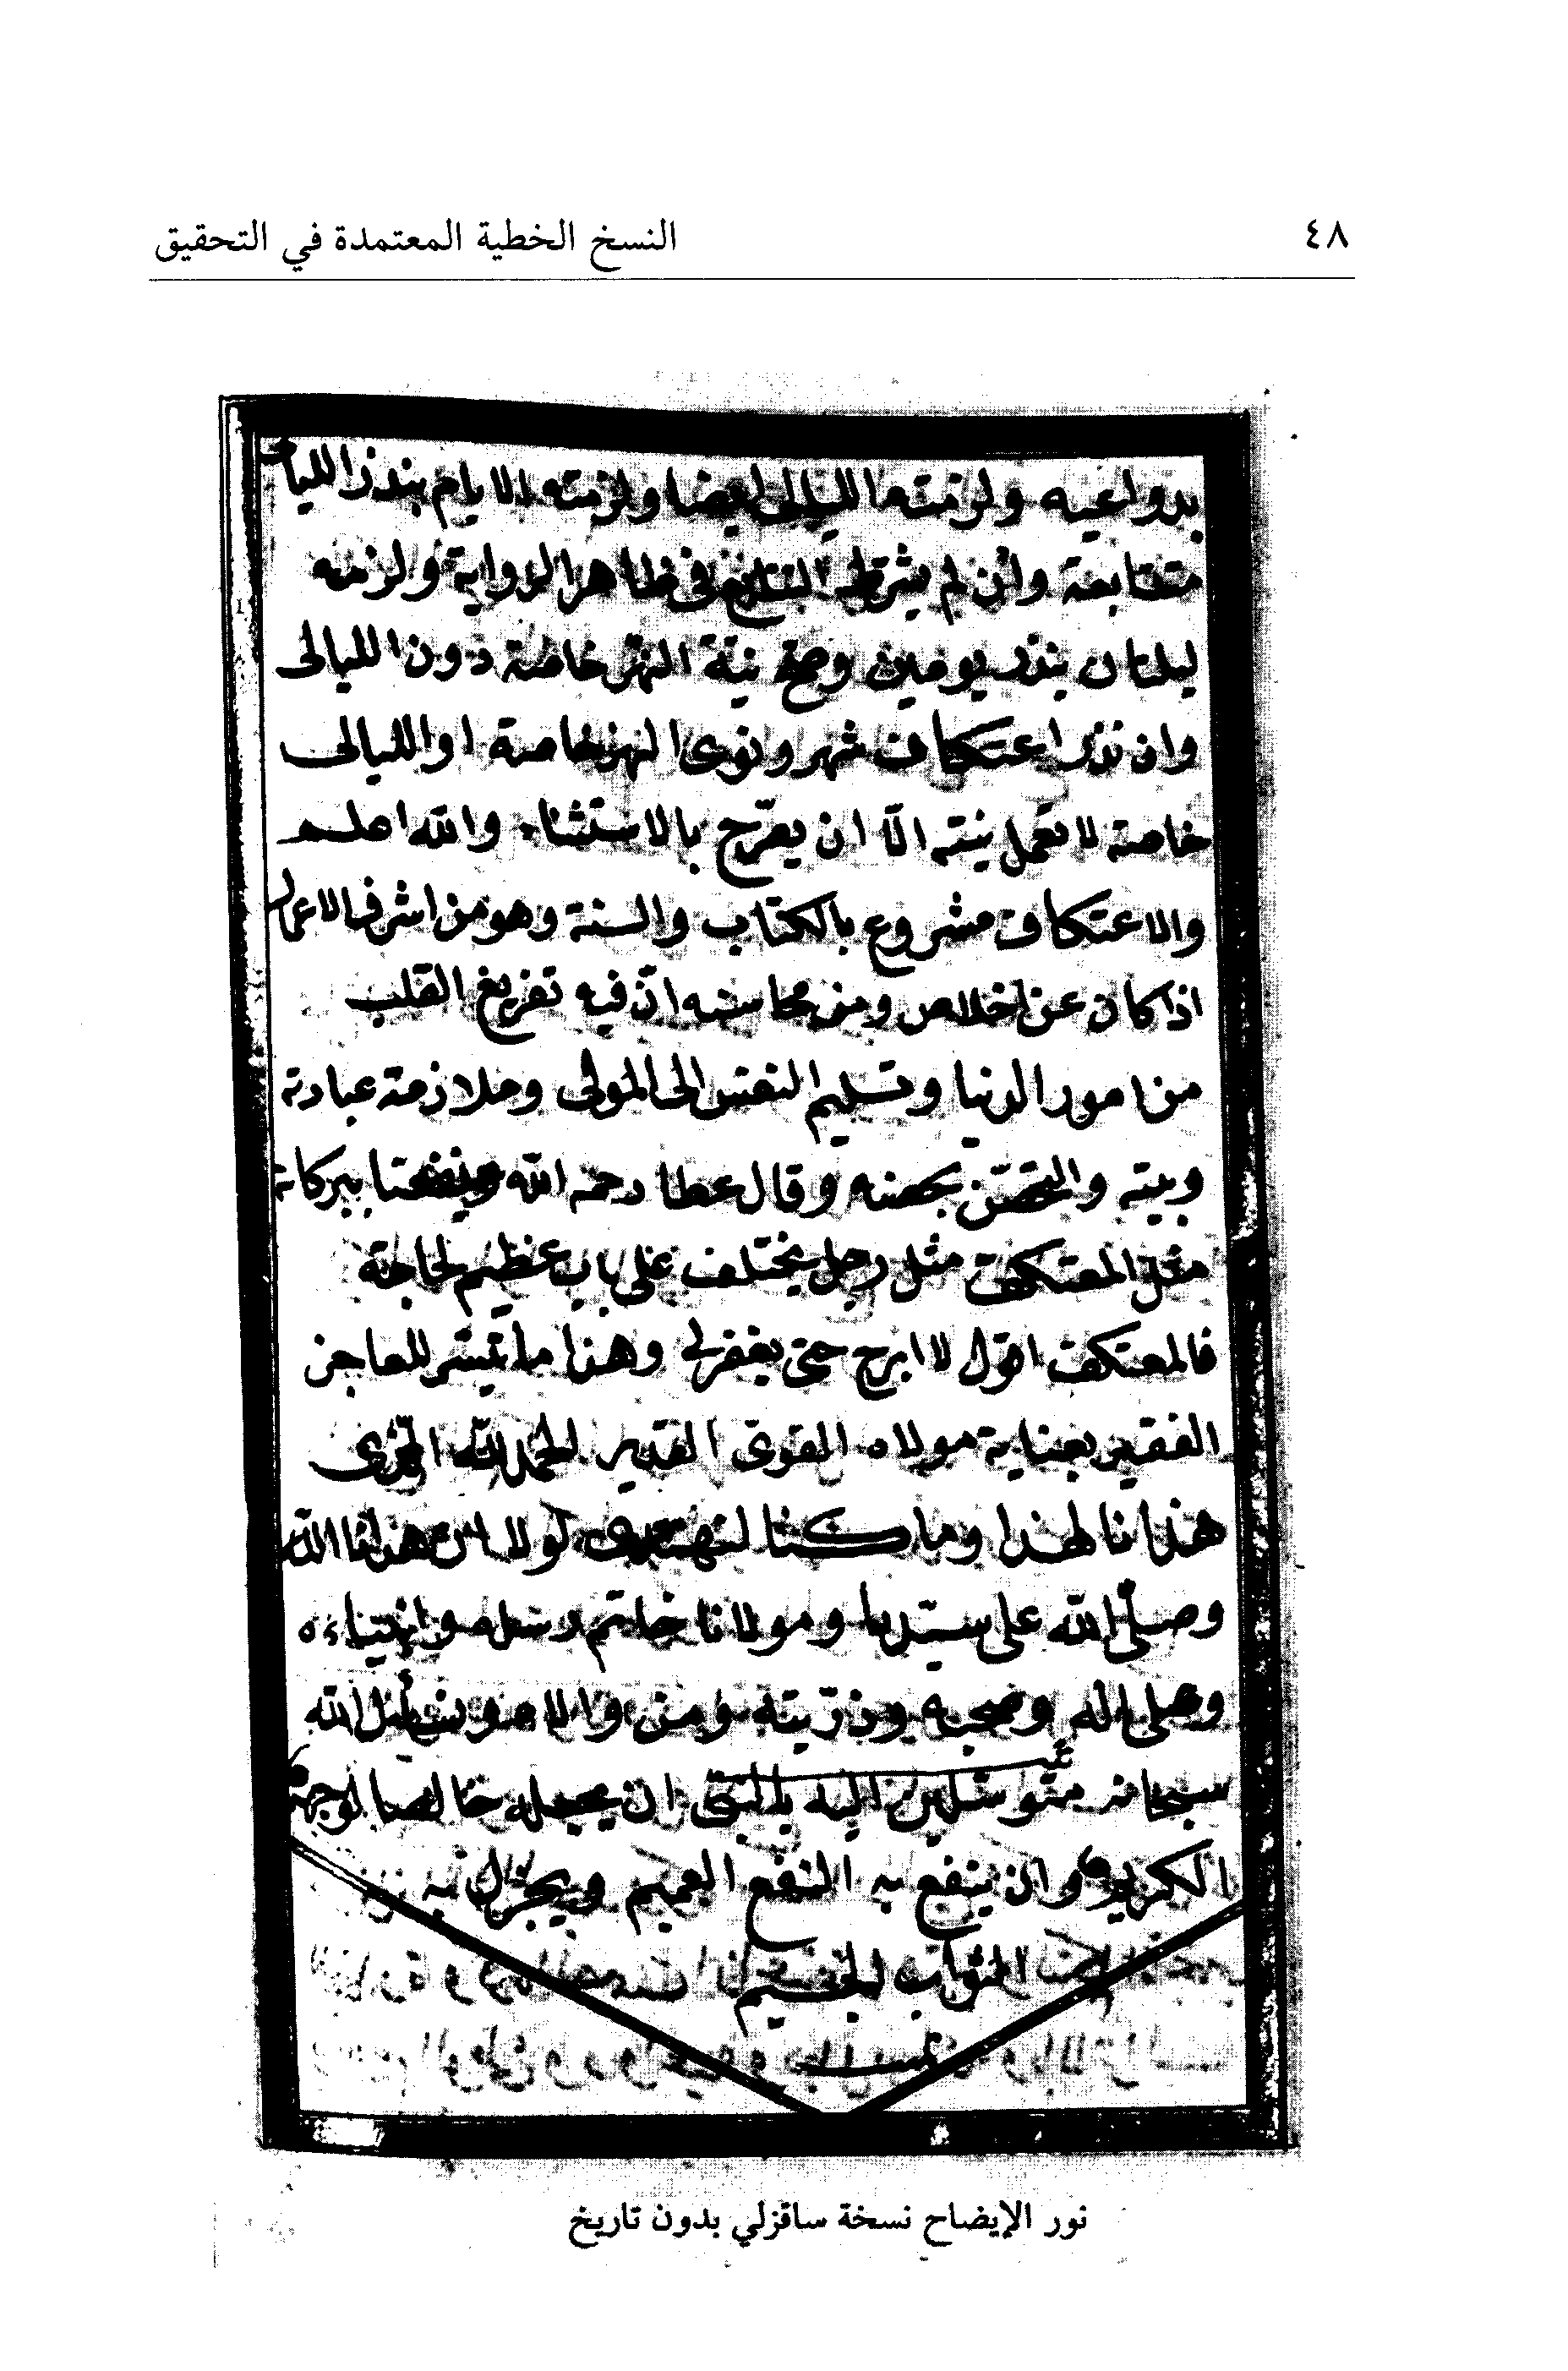 ٤٨ النسخ الخطية المعتمدة في التحقيق
بدواعيه ولزمته الليالى ايضا ولزمته الايام بنذر الليالى
متتابعة وان لم يشترط التتابع فى ظاهر الرواية ولزمه
ليلتان بنذر يومين وصح نية النهر خاصة دون الليالى
وان نذر اعتكاف شهر ونوى النهر خاصة او الليالى
خاصة لا تعمل نيته الّا ان يصرّح بالاستثناء والله اعلم
والاعتكاف مشروع بالكتاب والسنة وهو من اشرف الاعمال
اذا كان عن اخلاص ومن محاسنه انّ فيه تفريغ القلب
من امور الدنيا وتسليم النفس الى المولى وملازمة عبادته
وبيته والتحصّن بحصنه وقال عطا رحمه الله ونفعنا ببركاته
مثل المعتكف مثل رجل يختلف على باب عظيم لحاجة
فالمعتكف اقول لا ابرح حتى يغفر لى وهذا ما تيسّر للعاجز
الفقير بعناية مولاه القوىّ القدير الحمد لله الذى
هدانا لهذا وما كنا لنهتدى لولا ان هدانا الله
وصلّى الله على سيّدنا ومولانا خاتم رسله وانبياءه
وعلى اله وصحبه وذرّيته ومن والاه ونسأل الله
سبحانه متوسّلين اليه بالنبى ان يجعله خالصا لوجهه
الكريم وان ينفع به النفع العميم ويجزل به
الثواب الجسيم
تمت
نور الإيضاح نسخة ساقزلي بدون تاريخ